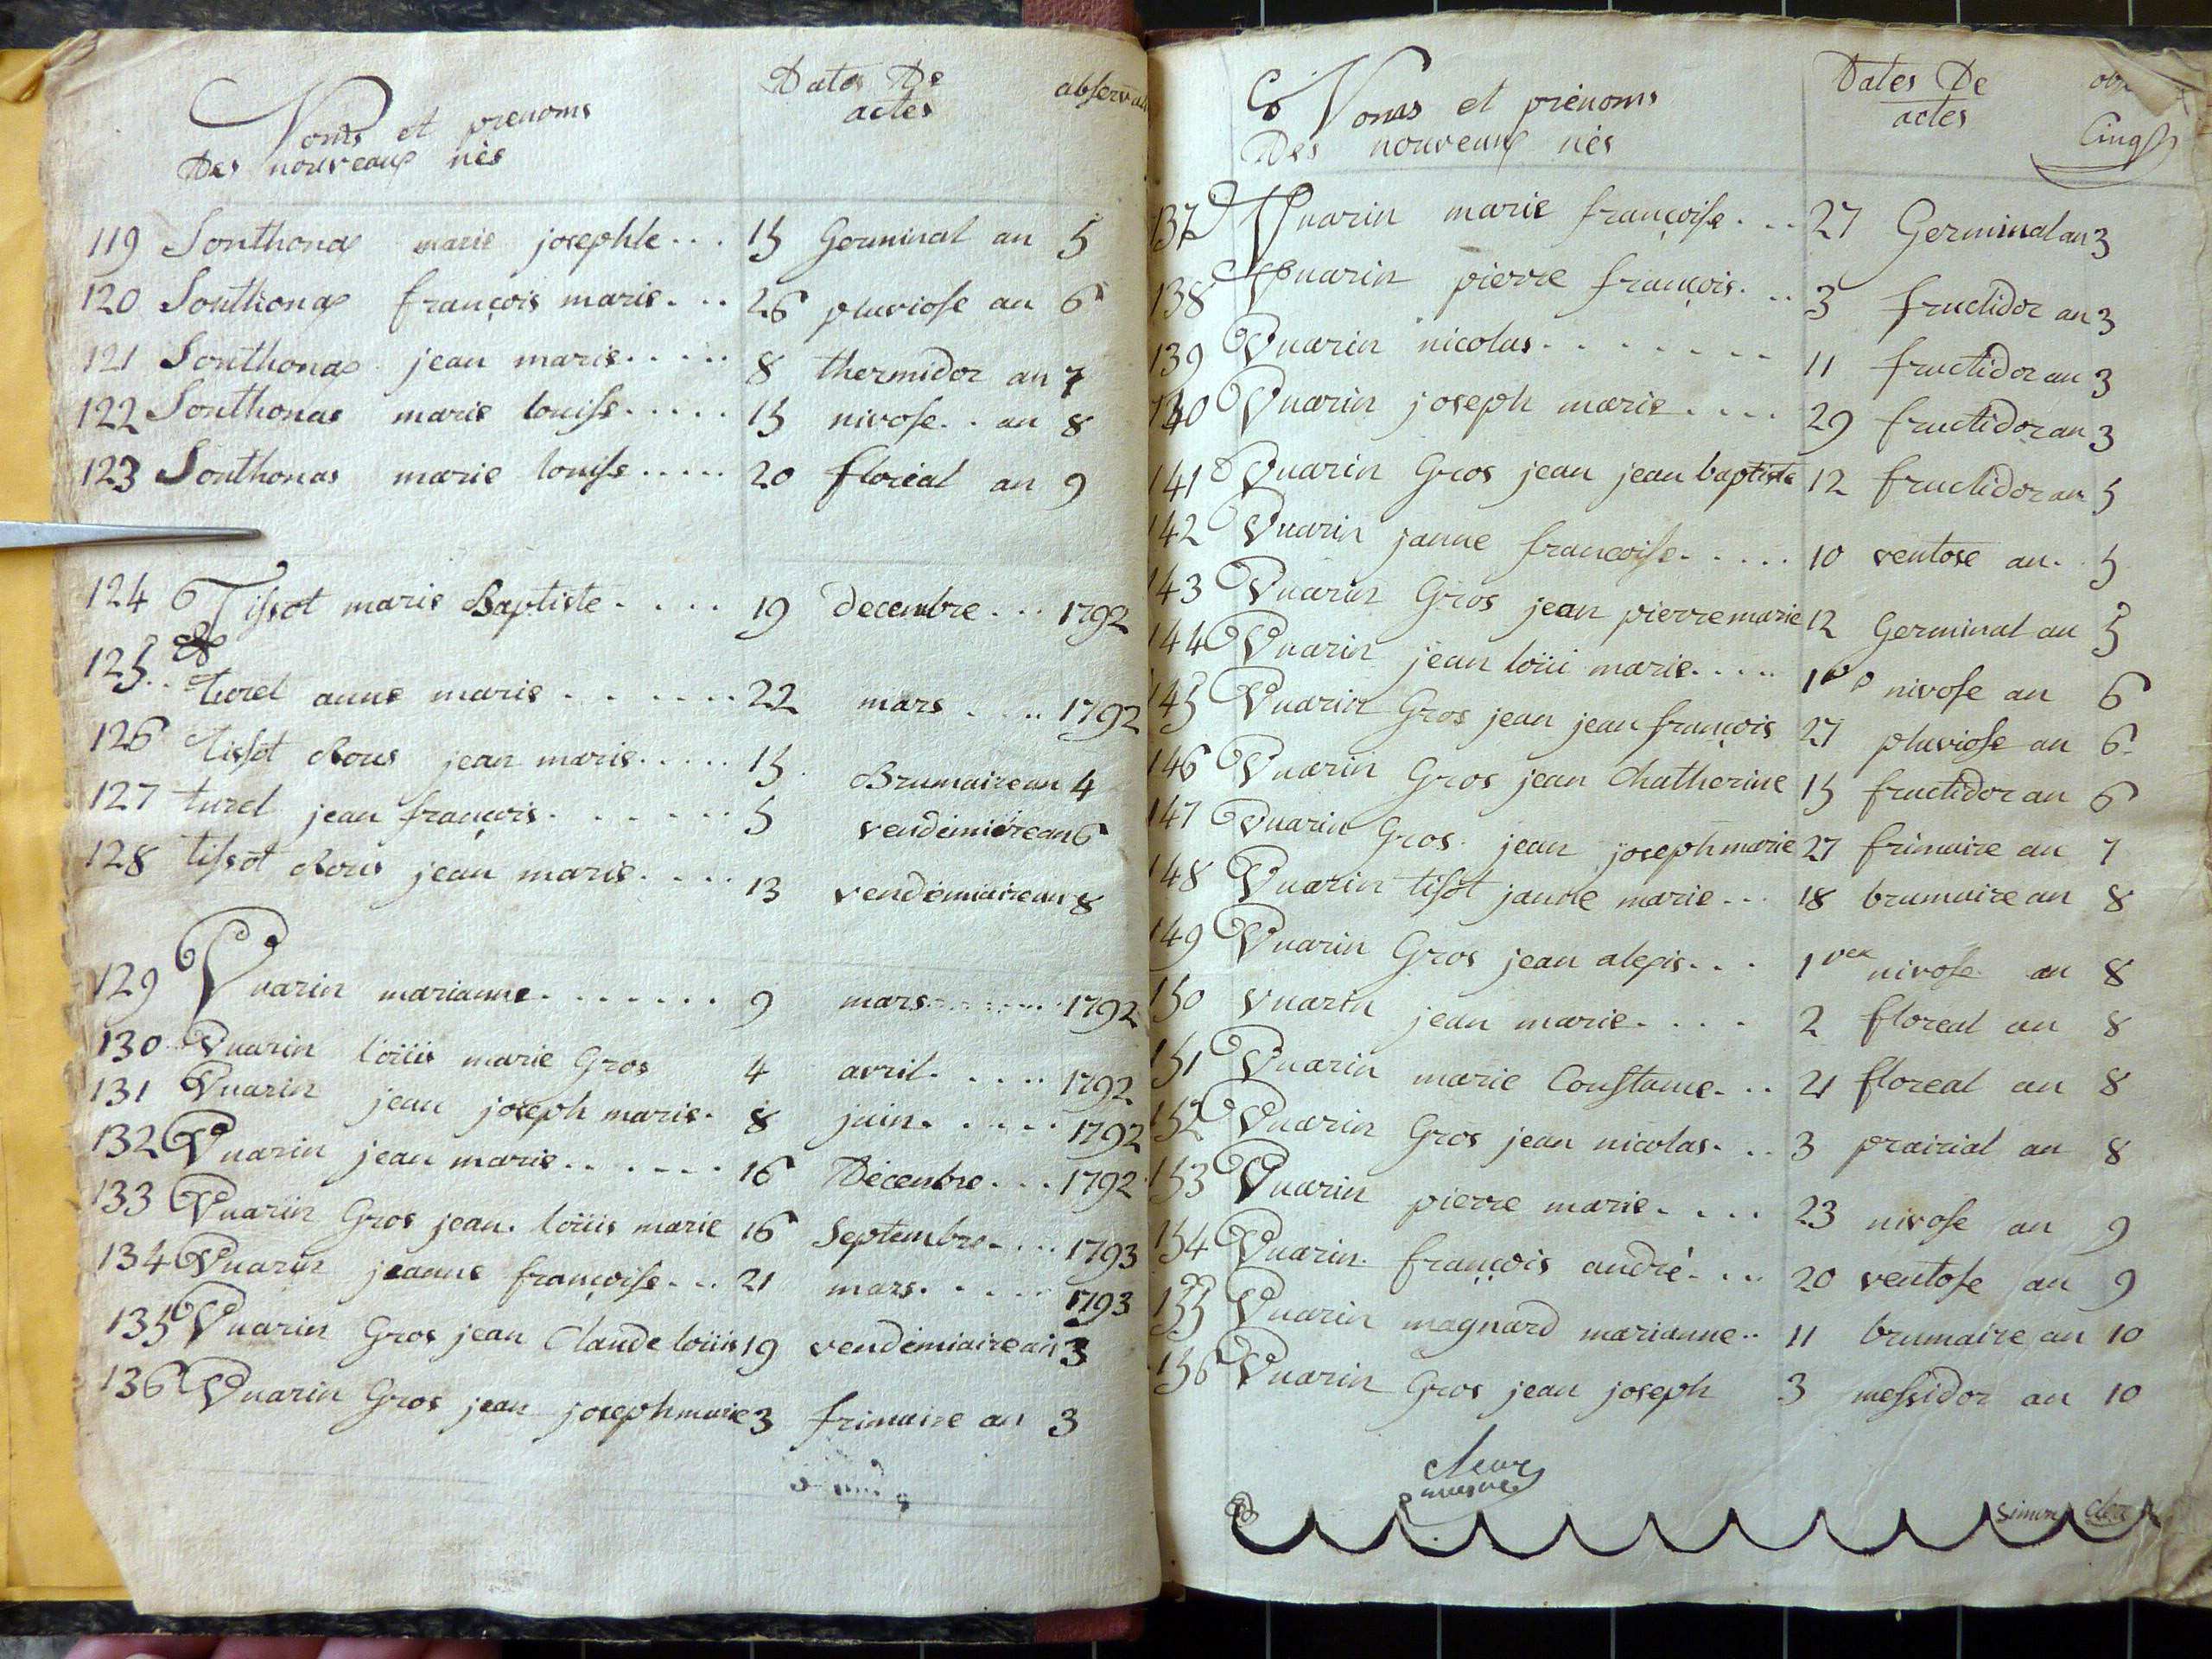 Noms et prenoms
Des nouveaux nés
Dates De
actes
119 Sonthonax marie josephte... 15 Germinal an 5
120 Sonthonax françois marie... 26 pluviose an 6
121 Sonthonax jean marie..... 8 thermidor an 7
122 Sonthonas marie louise..... 15 nivose.. an 8
123 Sonthonas marie louise..... 20 floréal an 9
124 Tissot marie Baptiste.... 19 decembre... 1792
125.. turel anne marie....... 22 mars.... 1792
126 tissot jean marie..... 15. Brumaire an 4
127 turel jean françois....... 5 vendémiere an 6
128 tissot jean marie.... 13 vendémiaire an 8
129 Vuarin marianne....... 9 mars........ 1792
130 Vuarin loüis marie Gros 4 avril..... 1792
131 Vuarin jean joseph marie. 8 juin...... 1792
132 Vuarin jean marie....... 16 Décenbre... 1792
133 Vuarin Gros jean. loüis marie 16 Septembre.... 1793
134 Vuarin jeanne françoise... 21 mars...... 1793
135 Vuarin Gros jean Claude loüis 19 vendémiaire an 3
136 Vuarin Gros jean joseph marie 3 frimaire an 3
Noms et prénoms
Des nouveaux nés
Dates De
actes
Cinq
137 Vuarin marie françoise... 27 Germinal an 3
138 Vuarin pierre françois... 3 fructidor an 3
139 Vuarin nicolas....... 11 fructidor an 3
140 Vuarin joseph marie.... 29 fructidor an 3
141 Vuarin Gros jean jean baptiste 12 fructidor an 5
142 Vuarin janne francoise..... 10 ventose an. 5
143 Vuarin Gros jean pierre marie 12 Germinal an 5
144 Vuarin jean loüi marie..... 1er nivose an 6
145 Vuarin Gros jean jean françois 27 pluviose an 6
146 Vuarin Gros jean Chatherine 15 fructidor an 6
147 Vuarin Gros. jean joseph marie 27 frimaire an 7
148 Vuarin tisot marie... 18 brumaire an 8
149 Vuarin Gros jean alexis... 1er nivose an 8
150 vuarin jean marie.... 2 floreal an 8
151 Vuarin marie Constance... 21 floreal an 8
152 Vuarin Gros jean nicolas... 3 prairial an 8
153 Vuarin pierre marie.... 23 nivose an 9
154 Vuarin françois andré.... 20 ventose an 9
155 Vuarin magnard marianne.. 11 brumaire an 10
156 Vuarin Gros jean joseph 3 messidor an 10